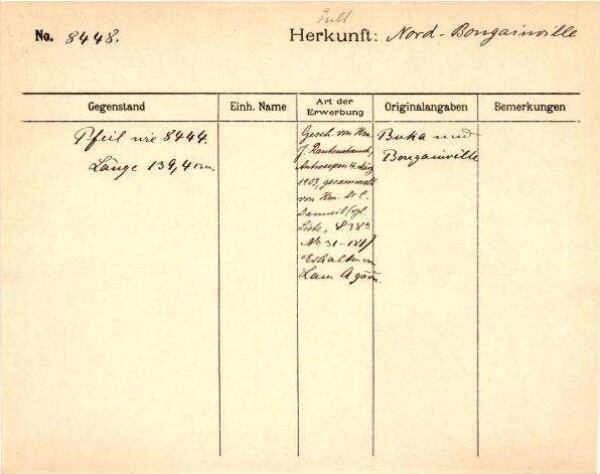 No. 8448. Herkunft: Nord-Bougainville
Gegenstand Einh. Name Art der Erwerbung Originalangaben Bemerkungen
Pfeil wie 8444.
Länge 139,4 cm.
Gesch. von Hrn.
J. Rautenstrauch,
Antwerpen
1903, gesammelt
von Hrn. Dr.
Liste,
No 31-181)
Erhalten
Buka und
Bougainville